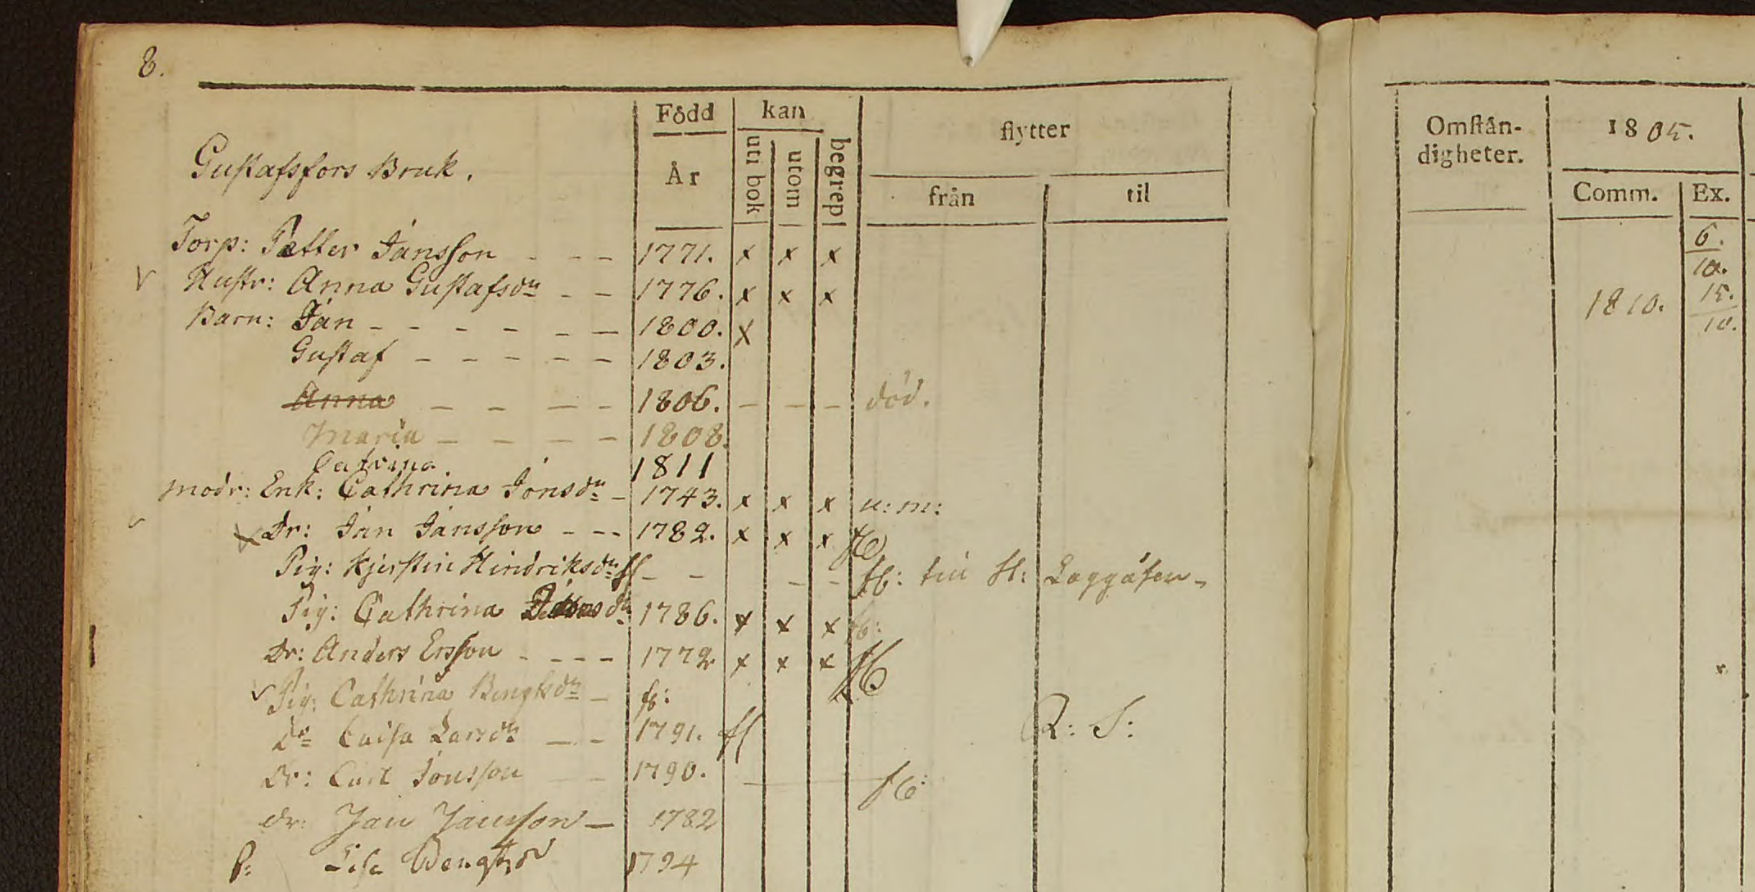 8.
Född kan flytter Omstän-
digheter. 1805.
Gustafsfors Bruk. År uti bok utom begrep från til Comm. Ex.
Torp: Petter Jansson - - - 1771. x x x 6.
10.
Hustr: Anna Gustafsdr - - 1776. x x x 1810. 15.
10.
Barn: Jan - - - - - - 1800. x
Gustaf - - - - - 1803.
Anna - - - - 1806. - - - död.
Maria - - - - 1808.
Catrina 1811
Modr: Enk: Cathrina Jonsdr - 1743. x x x u: m:
Dr: Jan Jansson - - - 1782. x x x
Pig: Kjerstin Hindriksdr fl - - - -
Pig: Cathrina 1786. x x x
Dr: Anders Ersson - - - - 1772 x x x
Pig: Cathrina Bengtsdr -
Do Caisa Larsdr - - 1791. fl R: S:
Dr: Carl Jonsson 1790.
dr: Jan Jansson - 1782
P: Lisa Bengtsd 1794